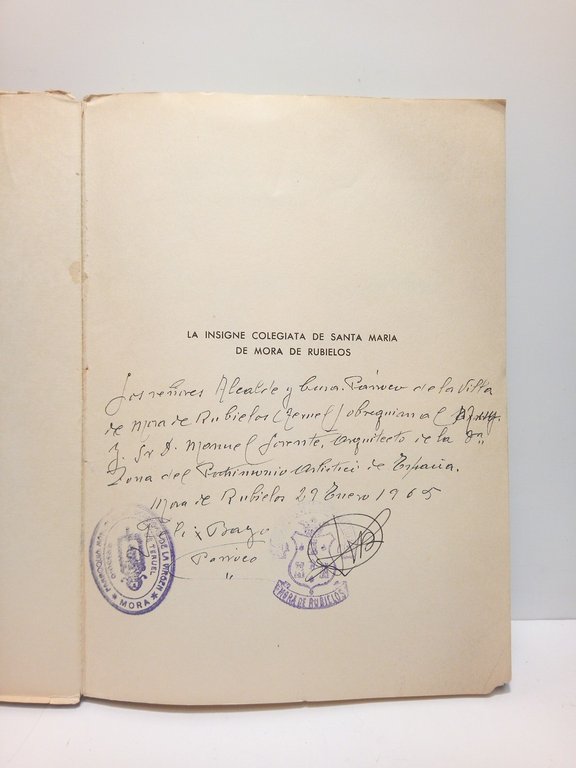 LA INSIGNE COLEGIATA DE SANTA MARIA
DE MORA DE RUBIELOS
Los señores Alcalde y Cura Párroco de la Villa
de Mora de Rubielos (Teruel) obsequian al
Y. Sr D. Manuel Lorente, Arquitecto de la
Zona del Patrimonio Artistici de España.
Mora de Rubielos 29 Enero 1965
Bayo
Párroco
"
DE LA VIRGEN
TERUEL
MORA
MORA DE RUBIELOS